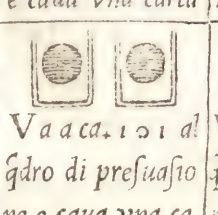 e caua vna carta
Vaaca. 101 al
q̃dro di preſuaſio
na e caua vna ca